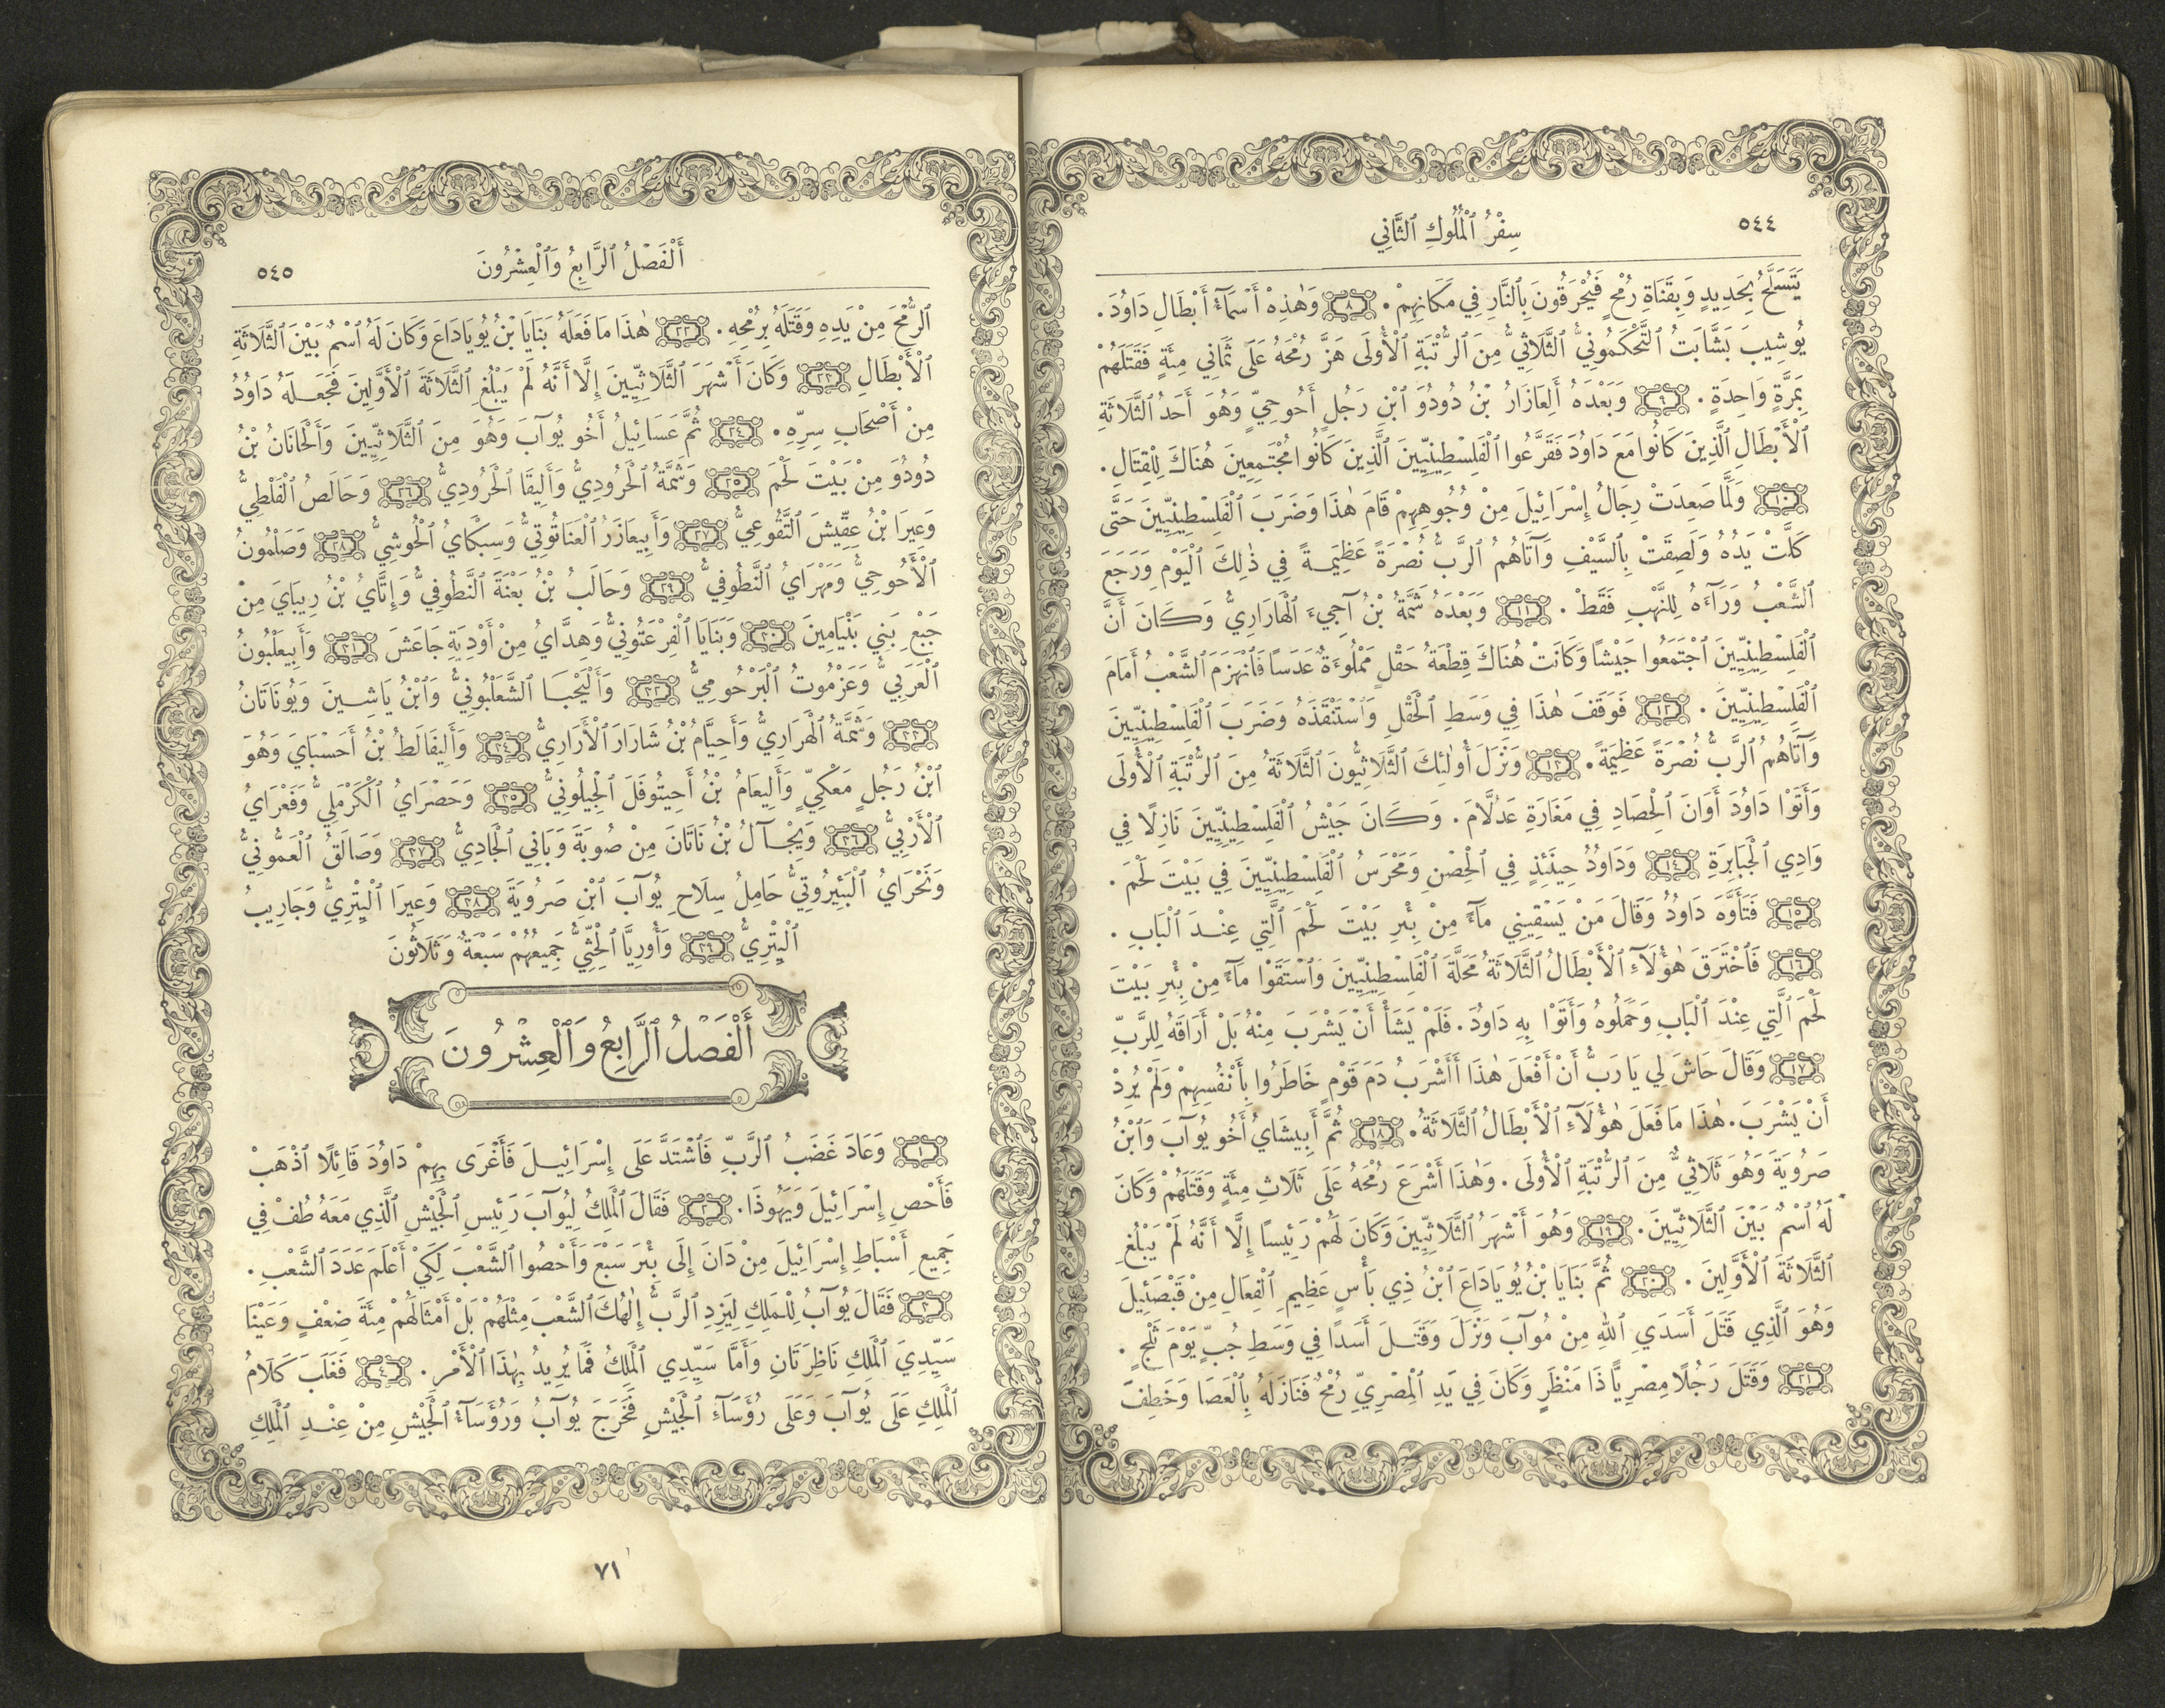 ٥٤٤
سِفْرُ ٱلْمُلُوكِ ٱلثَّانِي
يَتَسَلَّحُ بِحَدِيدٍ وَبِقَنَاةِ رُمْحٍ فَيُحْرَقُونَ بِٱلنَّارِ فِي مَكَانِهِمْ. ٨ وَهٰذِهْ أَسْمَآءُ أَبْطَالِ دَاوُدَ.
يُوشِيبَ بَشَّابَتُ ٱلتَّحْكَمُونِيُّ ٱلثَّلَاثِيُّ مِنَ ٱلرُّتْبَةِ ٱلْأُولَى هَزَّ رُمْحَهُ عَلَى ثَمَانِي مِئَةٍ فَقَتَلَهُمْ
بِمَرَّةٍ وَاحِدَةٍ. ٩ وَبَعْدَهُ أَلِعَازَارُ بْنُ دُودُوَ ٱبْنِ رَجُلٍ أَحُوحِيٍّ وَهُوَ أَحَدُ ٱلثَّلَاثَةِ
ٱلْأَبْطَالِ ٱلَّذِينَ كَانُوا مَعَ دَاوُدَ فَقَرَّعُوا ٱلْفَلِسْطِينِيِّينَ ٱلَّذِينَ كَانُوا مُجْتَمِعِينَ هُنَاكَ لِلْقِتَالِ.
١٠ وَلَمَّا صَعِدَتْ رِجَالُ إِسْرَائِيلَ مِنْ وُجُوهِهِمْ قَامَ هٰذَا وَضَرَبَ ٱلْفَلِسْطِينِيِّينَ حَتَّى
كَلَّتْ يَدُهُ وَلَصِقَتْ بِٱلسَّيْفِ وَآتَاهُمُ ٱلرَّبُّ نُصْرَةً عَظِيمَةً فِي ذٰلِكَ ٱلْيَوْمِ وَرَجَعَ
ٱلشَّعْبُ وَرَآءَهُ لِلنَّهْبِ فَقَطْ. ١١ وَبَعْدَهُ شَمَّةُ بْنُ آجِيءَ ٱلْهَارَارِيُّ وَكَانَ أَنَّ
ٱلْفَلِسْطِينِيِّينَ ٱجْتَمَعُوا جَيْشًا وَكَانَتْ هُنَاكَ قِطْعَةُ حَقْلٍ مَمْلُوءَةٌ عَدَسًا فَٱنْهَزَمَ ٱلشَّعْبُ أَمَامَ
ٱلْفَلِسْطِينِيِّينَ. ١٢ فَوَقَفَ هٰذَا فِي وَسَطِ ٱلْحَقْلِ وَٱسْتَنْقَذَهُ وَضَرَبَ ٱلْفَلِسْطِينِيِّينَ
وَآتَاهُمُ ٱلرَّبُّ نُصْرَةً عَظِيمَةً. ١٣ وَنَزَلَ أُولٰئِكَ ٱلثَّلَاثِيُّونَ ٱلثَّلَاثَةُ مِنَ ٱلرُّتْبَةِ ٱلْأُولَى
وَأَتَوْا دَاوُدَ أَوَانَ ٱلْحِصَادِ فِي مَغَارَةِ عَدُلَّامَ. وَكَانَ جَيْشُ ٱلْفَلِسْطِينِيِّينَ نَازِلًا فِي
وَادِي ٱلْجَبَابِرَةِ ١٤ وَدَاوُدُ حِينَئِذٍ فِي ٱلْحِصْنِ وَمَحْرَسُ ٱلْفَلِسْطِينِيِّينَ فِي بَيْتَ لَحْمَ.
١٥ فَتَأَوَّهَ دَاوُدُ وَقَالَ مَنْ يَسْقِينِي مَآءً مِنْ بِئْرِ بَيْتَ لَحْمَ ٱلَّتِي عِنْدَ ٱلْبَابِ.
١٦ فَٱخْتَرَقَ هٰؤُلَآءِ ٱلْأَبْطَالُ ٱلثَّلَاثَةُ مَحَلَّةَ ٱلْفَلِسْطِينِيِّينَ وَٱسْتَقَوْا مَآءً مِنْ بِئْرِ بَيْتَ
لَحْمَ ٱلَّتِي عِنْدَ ٱلْبَابِ وَحَمَلُوهُ وَأَتَوْا بِهِ دَاوُدَ. فَلَمْ يَشَأْ أَنْ يَشْرَبَ مِنْهُ بَلْ أَرَاقَهُ لِلرَّبِّ
١٧ وَقَالَ حَاشَ لِي يَا رَبُّ أَنْ أَفْعَلَ هٰذَا أَأَشْرَبُ دَمَ قَوْمٍ خَاطَرُوا بِأَنْفُسِهِمْ وَلَمْ يُرِدْ
أَنْ يَشْرَبَ. هٰذَا مَا فَعَلَ هٰؤُلَآءِ ٱلْأَبْطَالُ ٱلثَّلَاثَةُ. ١٨ ثُمَّ أَبِيشَايُ أَخُو يُوآبَ وَٱبْنُ
صَرُويَةَ وَهُوَ ثَلَاثِيٌّ مِنَ ٱلرُّتْبَةِ ٱلْأُولَى. وَهٰذَا أَشْرَعَ رُمْحَهُ عَلَى ثَلَاثِ مِئَةٍ وَقَتَلَهُمْ وَكَانَ
لَهُ ٱسْمٌ بَيْنَ ٱلثَّلَاثِيِّينَ. ١٩ وَهُوَ أَشْهَرُ ٱلثَّلَاثِيِّينَ وَكَانَ لَهُمْ رَئِيسًا إِلَّا أَنَّهُ لَمْ يَبْلُغِ
ٱلثَّلَاثَةَ ٱلْأَوَّلِينَ. ٢٠ ثُمَّ بَنَايَا بْنُ يُويَادَاعَ ٱبْنُ ذِي بَأْسٍ عَظِيمِ ٱلْفِعَالِ مِنْ قَبْصَئِيلَ
وَهُوَ ٱلَّذِي قَتَلَ أَسَدَيِ ٱللهِ مِنْ مُوآبَ وَنَزَلَ وَقَتَلَ أَسَدًا فِي وَسَطِ جُبٍّ يَوْمَ ثَلْجٍ.
٢١ وَقَتَلَ رَجُلًا مِصْرِيًّا ذَا مَنْظَرٍ وَكَانَ فِي يَدِ ٱلْمِصْرِيِّ رُمْحٌ فَنَازَلَهُ بِٱلْعَصَا وَخَطِفَ
أَلْفَصْلُ ٱلرَّابِعُ وَٱلْعِشْرُونَ
٥٤٥
ٱلرُّمْحَ مِنْ يَدِهِ وَقَتَلَهُ بِرُمْحِهِ. ٢٢ هٰذَا مَا فَعَلَهُ بَنَايَا بْنُ يُويَادَاعَ وَكَانَ لَهُ ٱسْمٌ بَيْنَ ٱلثَّلَاثَةِ
ٱلْأَبْطَالِ ٢٣ وَكَانَ أَشْهَرَ ٱلثَّلَاثِيِّينَ إِلَّا أَنَّهُ لَمْ يَبْلُغِ ٱلثَّلَاثَةَ ٱلْأَوَّلِينَ فَجَعَلَهُ دَاوُدُ
مِنْ أَصْحَابِ سِرِّهِ. ٢٤ ثُمَّ عَسَائِيلُ أَخُو يُوآبَ وَهُوَ مِنَ ٱلثَّلَاثِيِّينَ وَأَلْحَانَانُ بْنُ
دُودُوَ مِنْ بَيْتَ لَحْمَ ٢٥ وَشَمَّةُ ٱلْحَرُودِيُّ وَأَلِيقَا ٱلْحَرُودِيُّ ٢٦ وَحَالَصُ ٱلْفَلْطِيُّ
وَعِيرَا بْنُ عِقِّيشَ ٱلتَّقُوعِيُّ ٢٧ وَأَبِيعَازَرُ ٱلْعَنَاتُوتِيُّ وَسِبْكَايُ ٱلْحُوشِيُّ ٢٨ وَصَلْمُونُ
ٱلْأَحُوحِيُّ وَمَهْرَايُ ٱلنَّطُوفِيُّ ٢٩ وَحَالَبُ بْنُ بَعْنَةَ ٱلنَّطُوفِيُّ وَإِتَّايُ بْنُ رِيبَايَ مِنْ
جَبْعِ بَنِي بَنْيَامِينَ ٣٠ وَبَنَايَا ٱلْفِرْعَتُونِيُّ وَهِدَّايُ مِنْ أَوْدِيَةِ جَاعَشَ ٣١ وَأَبِيعَلْبُونُ
ٱلْعَرَبِيُّ وَعَزْمُوتُ ٱلْبَرْحُومِيُّ ٣٢ وَأَلْيَحْبَا ٱلشَّعَلْبُونِيُّ وَٱبْنُ يَاشِينَ وَيُونَاتَانُ
٣٣ وَشَمَّةُ ٱلْهَرَارِيُّ وَأَحِيَّامُ بْنُ شَارَارَ ٱلْأَرَارِيُّ ٣٤ وَأَلِيفَالَطُ بْنُ أَحَسْبَايَ وَهُوَ
ٱبْنُ رَجُلٍ مَعْكِيٍّ وَأَلِيعَامُ بْنُ أَحِيتُوفَلَ ٱلْجِيلُونِيُّ ٣٥ وَحَصْرَايُ ٱلْكَرْمَلِيُّ وَفَعْرَايُ
ٱلْأَرْبِيُّ ٣٦ وَيِجْآلُ بْنُ نَاتَانَ مِنْ صُوبَةَ وَبَانِي ٱلْجَادِيُّ ٣٧ وَصَالَقُ ٱلْعَمُّونِيُّ
وَنَحْرَايُ ٱلْبَئِيرُوتِيُّ حَامِلُ سِلَاحِ يُوآبَ ٱبْنِ صَرُويَةَ ٣٨ وَعِيرَا ٱلْيِتْرِيُّ وَجَارِيبُ
ٱلْيِتْرِيُّ ٣٩ وَأُورِيَّا ٱلْحِثِّيُّ جَمِيعُهُمْ سَبْعَةٌ وَثَلَاثُونَ
أَلْفَصْلُ ٱلرَّابِعُ وَٱلْعِشْرُونَ
١ وَعَادَ غَضَبُ ٱلرَّبِّ فَٱشْتَدَّ عَلَى إِسْرَائِيلَ فَأَغْرَى بِهِمْ دَاوُدَ قَائِلًا ٱذْهَبْ
فَأَحْصِ إِسْرَائِيلَ وَيَهُوذَا. ٢ فَقَالَ ٱلْمَلِكُ لِيُوآبَ رَئِيسِ ٱلْجَيْشِ ٱلَّذِي مَعَهُ طُفْ فِي
جَمِيعِ أَسْبَاطِ إِسْرَائِيلَ مِنْ دَانَ إِلَى بِئْرَ سَبْعَ وَأَحْصُوا ٱلشَّعْبَ لِكَيْ أَعْلَمَ عَدَدَ ٱلشَّعْبِ.
٣ فَقَالَ يُوآبُ لِلْمَلِكِ لِيَزِدِ ٱلرَّبُّ إِلٰهُكَ ٱلشَّعْبَ مِثْلَهُمْ بَلْ أَمْثَالَهُمْ مِئَةَ ضِعْفٍ وَعَيْنَا
سَيِّدِيَ ٱلْمَلِكِ نَاظِرَتَانِ وَأَمَّا سَيِّدِي ٱلْمَلِكُ فَمَا يُرِيدُ بِهٰذَا ٱلْأَمْرِ. ٤ فَغَلَبَ كَلَامُ
ٱلْمَلِكِ عَلَى يُوآبَ وَعَلَى رُؤَسَآءِ ٱلْجَيْشِ فَخَرَجَ يُوآبُ وَرُؤَسَآءُ ٱلْجَيْشِ مِنْ عِنْدِ ٱلْمَلِكِ
٧١